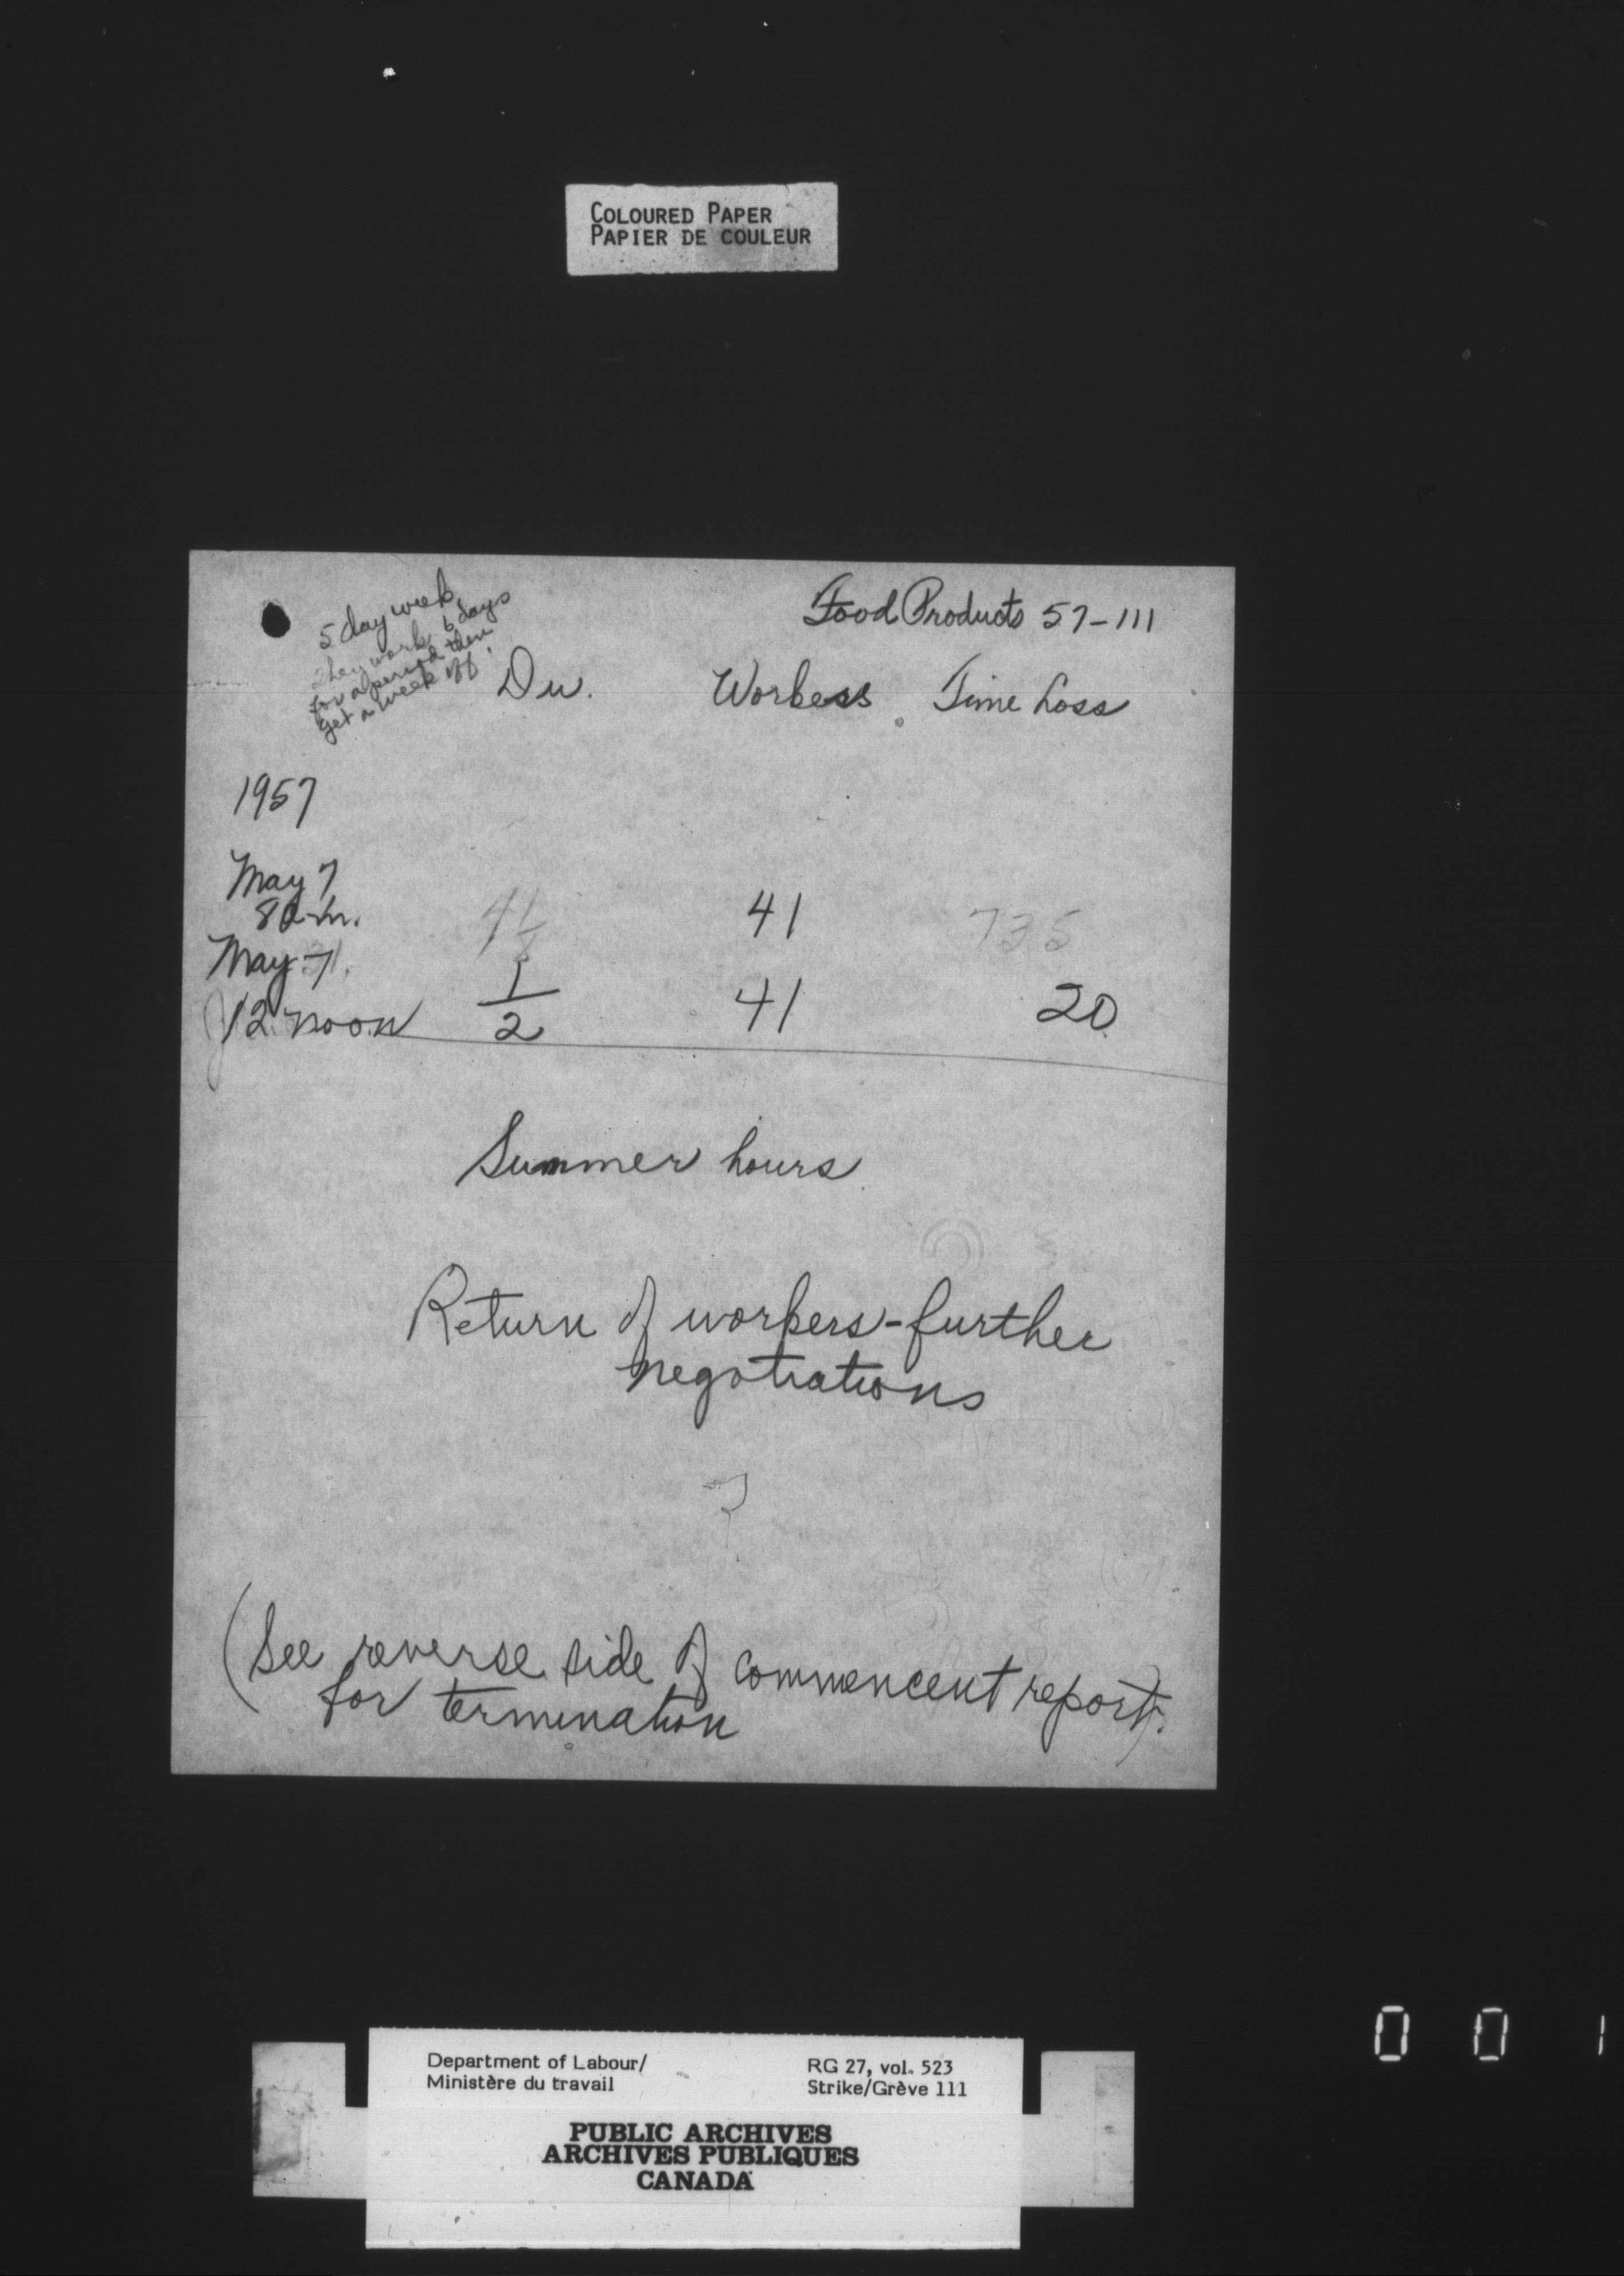 COLOURED PAPER
PAPIER DE COULEUR
Food Products 57-111
5 day week
They work 6 days
for a period then
get a week off.
Du. Workers Time Loss
1957
May 7
8 a.m. 41 735
May 7
12 noon 1/2 41 20
Summer hours
Return of workers - further
negotiations
(See reverse side of commencent report).
for termination
0 0 1
Department of Labour/
Ministère du travail
RG 27, vol. 523
Strike/Grève 111
PUBLIC ARCHIVES
ARCHIVES PUBLIQUES
CANADA